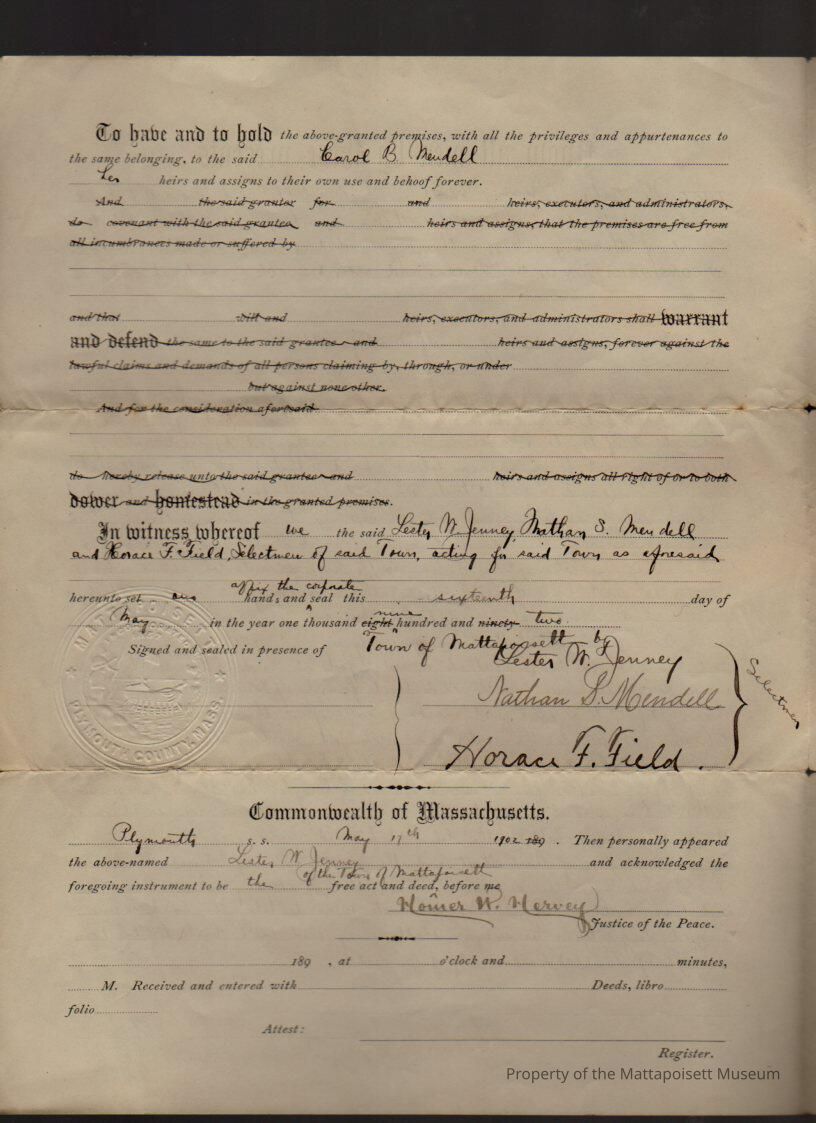 To have and to hold the above-granted premises, with all the privileges and appurtenances to
the same belonging, to the said Carol B. Mendell
her heirs and assigns to their own use and behoof forever.
And the said grantor for and heirs, executors, and administrators,
do covenant with the said grantee and heirs and assigns, that the premises are free from
all incumbrances made or suffered by
and that will and heirs, executors, and administrators shall warrant
and defend the same to the said grantee and heirs and assigns, forever against the
lawful claims and demands of all persons claiming by, through, or under
but against none other.
And for the consideration aforesaid
do hereby release unto the said grantee and heirs and assigns all right of or to both
dower and homestead in the granted premises.
In witness whereof we the said Lester W. Jenney, Nathan S. Mendell
and Horace F. Field, Selectmen of said Town, acting for said Town as aforesaid
affix the corporate
hereunto set our hands and seal this sixteenth day of
nine
May in the year one thousand eight hundred and ninety two
Signed and sealed in presence of Town of Mattapoisett by
Lester W. Jenney
Nathan S. Mendell
Horace F. Field.
Selectmen
MATTAPOISETT
PLYMOUTH COUNTY, MASS
Commonwealth of Massachusetts.
Plymouth s. s. May 17th 1902 189 . Then personally appeared
the above-named Lester W. Jenney and acknowledged the
of the Town of Mattapoisett
foregoing instrument to be the free act and deed, before me
Homer W. Hervey
Justice of the Peace.
189 , at o'clock and minutes,
M. Received and entered with Deeds, libro
folio
Attest:
Register.
Property of the Mattapoisett Museum